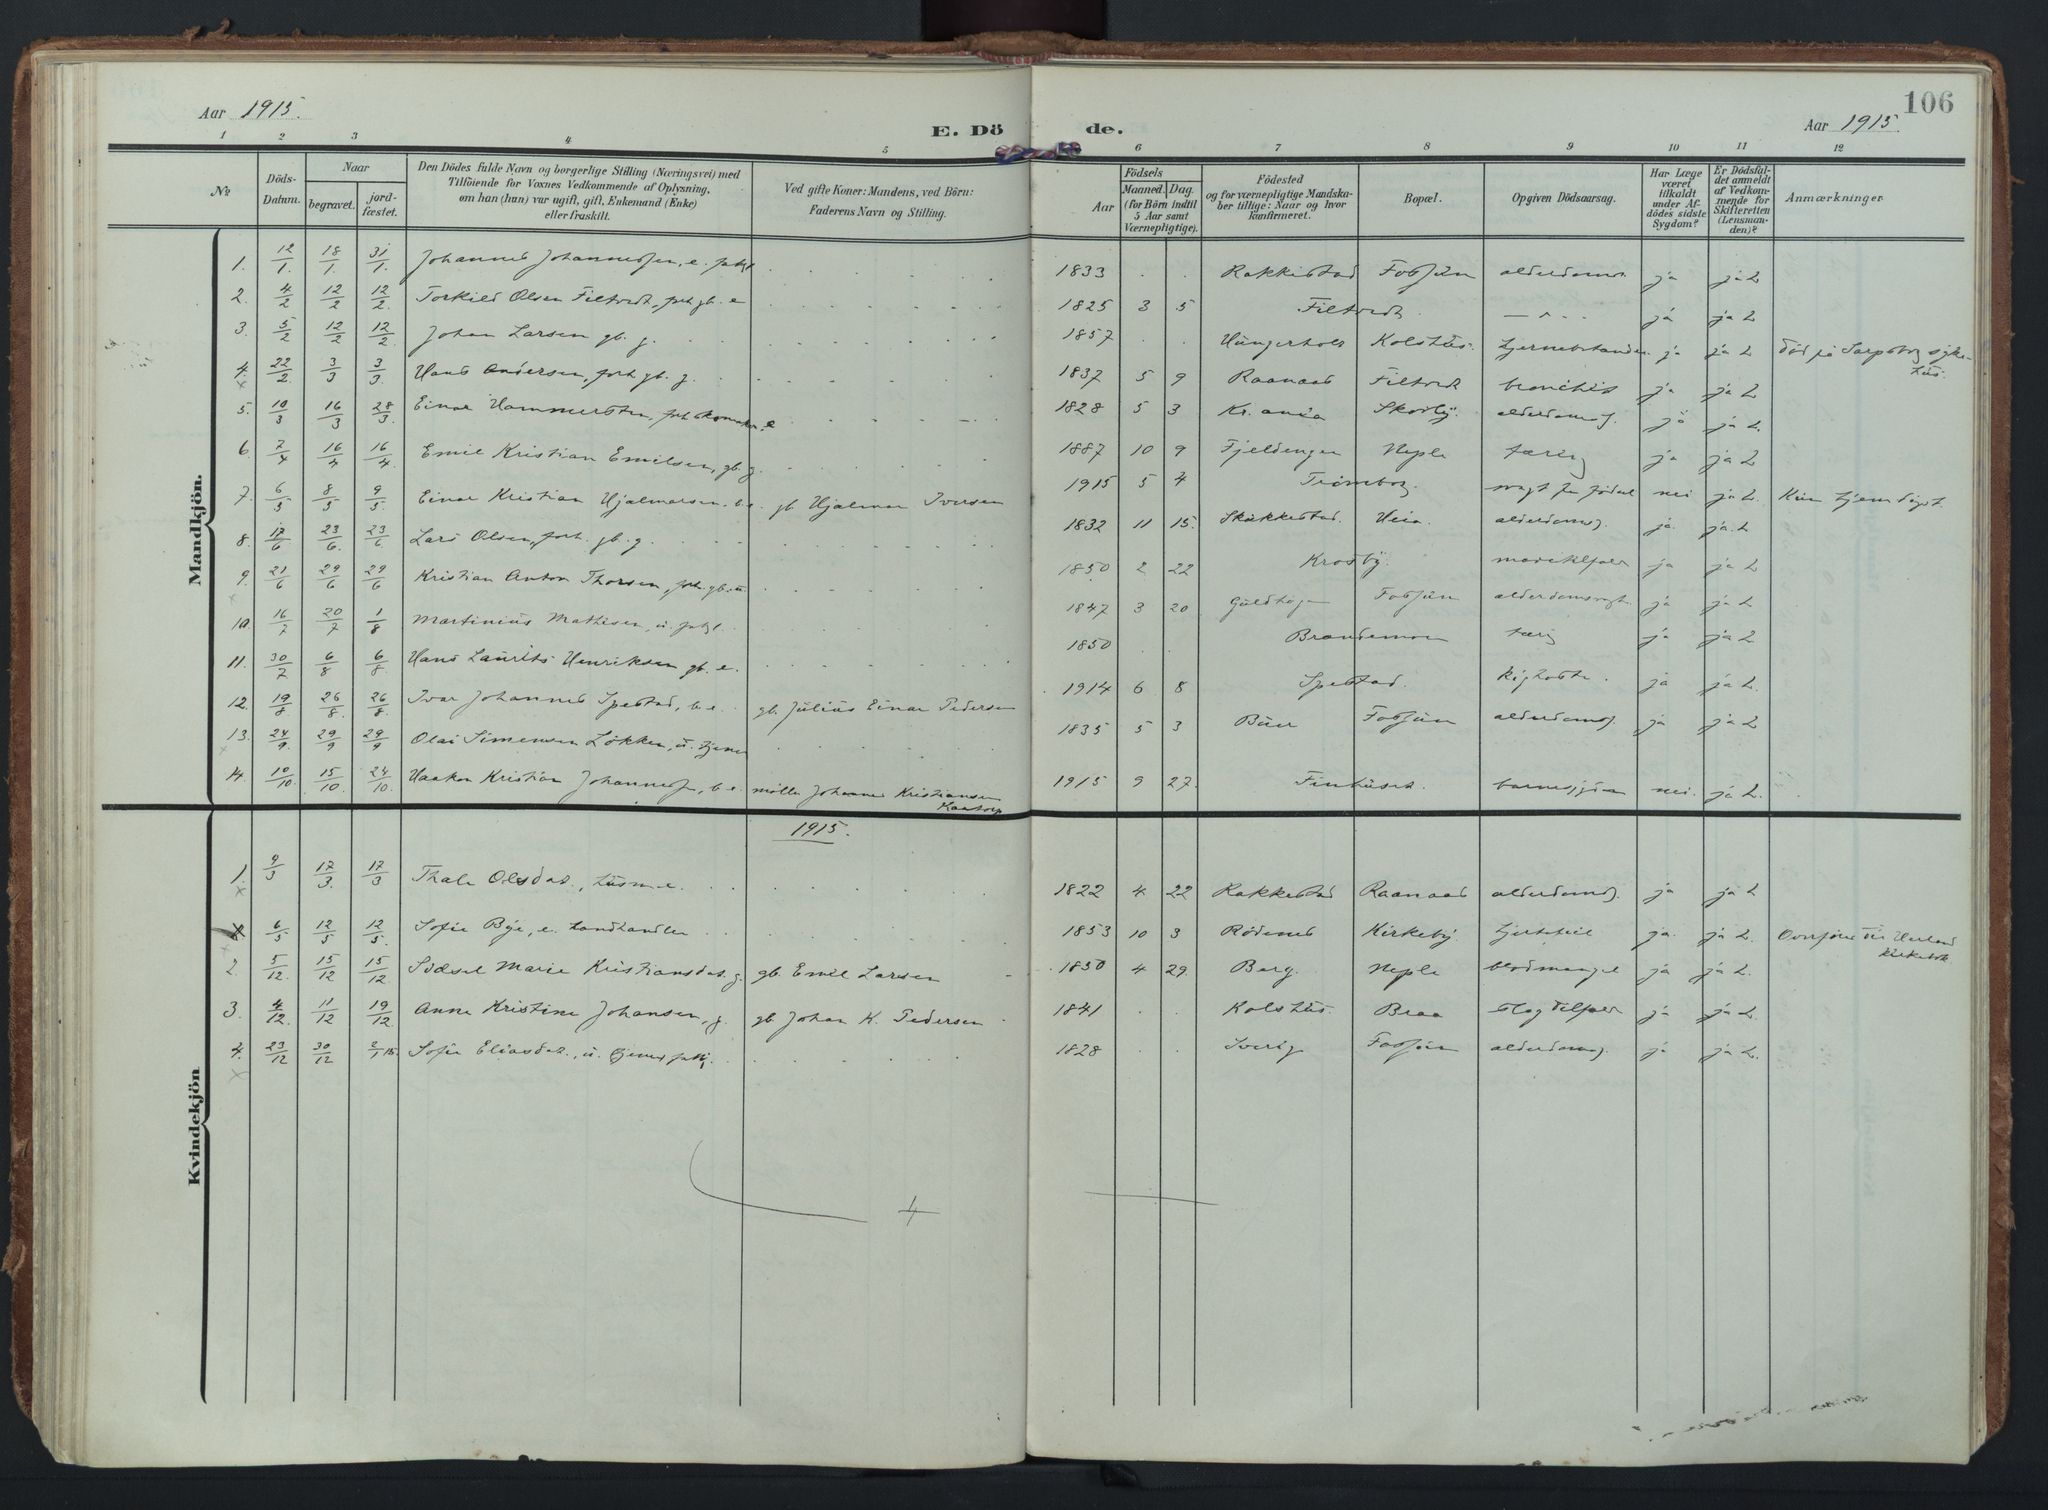 106
Aar 1915.
E. Dö de.
Aar 1915.
1 2 3 4 5 6 7 8 9 10 11 12
No
Döds-Datum.
Naar
begravet.
jord-fæstet.
Den Dödes fulde Navn og borgerlige Stilling (Næringsvei) med
Tilföiende for Voxnes Vedkommende af Oplysning,
om han (hun) var ugift, gift, Enkemand (Enke)
eller fraskilt.
Ved gifte Koner: Mandens, ved Börn:
Faderens Navn og Stilling.
Födsels
Aar
Maaned. Dag.
(for Börn indtil
5 Aar samt
Værnepligtige).
Födested
og for værnepligtige Mandska-
ber tillige: Naar og hvor
konfirmeret.
Bopæl.
Opgiven Dödsaarsag.
Har Læge
været
tilkaldt
under Af-
dödes sidste
Sygdom?
Er Dödsfal-
det anmeldt
af Vedkom-
mende for
Skifteretten
(Lensman-
den)?
Anmærkninger
Mandkjön.
1. 12/1. 18/1. 31/1. Johannes Johannessen, e. 1833 Rakkestad Fossum alderdoms ja ja L
2. 4/2 12/2 12/2 Torkild Olsen Filtvedt, forh. gb. e 1825 3 5 Filtvedt ja ja L
3. 5/2 12/2 12/2. Johan Larsen gb. g. 1857 Hungerholt Kolshus. ja ja L død på Sarpsborg syke-
hus.
4. 22/2. 3/3 3/3. Hans Andersen, forh. gb. g. 1837 5 9 Raanaas Filtvedt bronchit ja ja L
5. 10/3 16/3 28/3 Einar Hammersten, forh. e 1828 5 3 Kr.ania Skotby. alderdoms. ja ja L
6. 7/4 16/4 16/4. Emil Kristian Emilsen, gb. g. 1887 10 9 Fjeldengen Neple tæring ja ja L
7. 6/5 8/5 9/5. Einar Kristian Hjalmarsen, b.e. gb Hjalmar Iversen 1915 5 4 Trömborg svagt fra fødsel nei ja L. Kun hjemdöpt.
8. 17/6 23/6. 23/6 Lars Olsen, forh. gb. g. 1832 11 15. Skakkestad. Heia. alderdoms. ja. ja. L
9. 21/6 29/6 29/6 Kristian Anton Thorsen, forh. gb. u. 1850 2 22 Krosby. ja ja L
10. 16/7 20/7 1/8 Martinius Mathisen, u. 1847 3 20 Guldhaug Fossum alderdomssvagh. ja ja L
11. 30/7 6/8 6/8 Hans Laurits Henriksen gb. e. 1850 Brandemoen tæring ja ja L
12. 19/8 26/8. 26/8. Ivar Johannes Spestad, b. e. gb. Julius Einar Pedersen 1914 6 8 Spestad. kighoste. ja ja L.
13. 24/9. 29/9 29/9 Olai Simensen Løkken, u. tjener 1835 5 3 Buer Fossum alderdoms. ja ja L
14. 10/10 15/10. 24/10. Haakon Kristian Johannessen, b e. mölle Johannes Kristiansen
Kaatorp 1915 9 27. Finhuset. nei. ja L.
1915.
Kvindekjön
1. 9/3 17/3. 17/3 Thale Olsdat., husm.e. 1822 4 22 Rakkestad Raanaas alderdoms. ja ja L
6/5 12/5 12/5. Sofie Bye, e. landhandler 1853 10 3 Rödenes Kirkeby. hjertefeil ja. ja L. Overføres til Herland
kirkebok.
2. 5/12. 15/12 15/12 Sidsel Marie Kristiansdat. g. gb. Emil Larsen 1850 4 29. Berg. Neple blodmangel ja ja L
3. 4/12. 11/12 19/12. Anne Kristine Johansen, g. gb. Johan K. Pedersen 1841 Kolshus. Braa slagtilfælde ja ja L.
4. 23/12 30/12 2/1 16. Sofie Eliasdat., u. 1828 Sverig Fossum alderdoms. ja ja L.